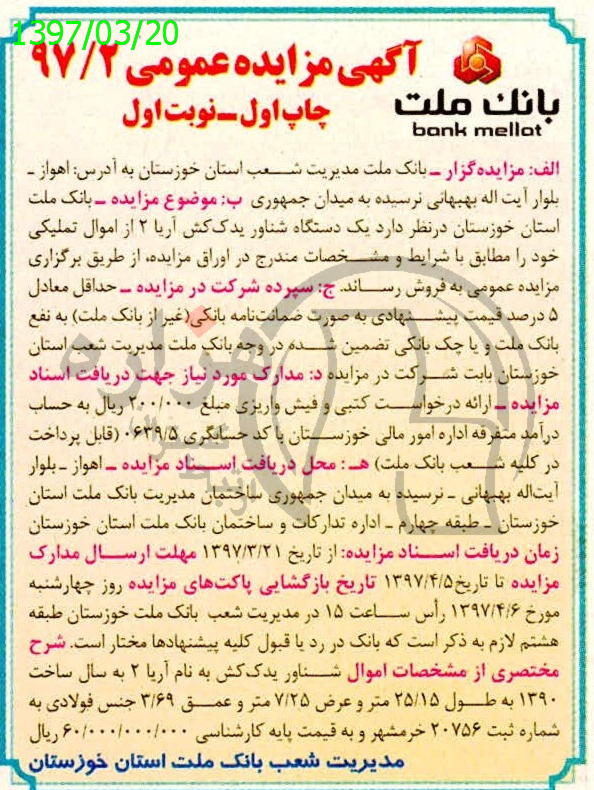 1397/03/20
آگهی مزایده عمومی ۹۷/۲
چاپ اول ــ نوبت اول
بانک ملت
bank mellat
الف: مزایده‌گزار ــ بانک ملت مدیریت شعب استان خوزستان به آدرس: اهواز ـ
بلوار آیت اله بهبهانی نرسیده به میدان جمهوری ب: موضوع مزایده ــ بانک ملت
استان خوزستان درنظر دارد یک دستگاه شناور یدک‌کش آریا ۲ از اموال تملیکی
خود را مطابق با شرایط و مشخصات مندرج در اوراق مزایده، از طریق برگزاری
مزایده عمومی به فروش رساند. ج: سپرده شرکت در مزایده ــ حداقل معادل
۵ درصد قیمت پیشنهادی به صورت ضمانت‌نامه بانکی (غیر از بانک ملت) به نفع
بانک ملت و یا چک بانکی تضمین شده در وجه بانک ملت مدیریت شعب استان
خوزستان بابت شرکت در مزایده د: مدارک مورد نیاز جهت دریافت اسناد
مزایده ــ ارائه درخواست کتبی و فیش واریزی مبلغ ۲۰۰/۰۰۰ ریال به حساب
درآمد متفرقه اداره امور مالی خوزستان با کد حسابگری ۰۶۳۹/۵ (قابل پرداخت
در کلیه شعب بانک ملت) هـ: محل دریافت اسناد مزایده ــ اهواز ـ بلوار
آیت‌اله بهبهانی ـ نرسیده به میدان جمهوری ساختمان مدیریت بانک ملت استان
خوزستان ـ طبقه چهارم ـ اداره تدارکات و ساختمان بانک ملت استان خوزستان
زمان دریافت اسناد مزایده: از تاریخ ۱۳۹۷/۳/۲۱ مهلت ارسال مدارک
مزایده تا تاریخ ۱۳۹۷/۴/۵ تاریخ بازگشایی پاکت‌های مزایده روز چهارشنبه
مورخ ۱۳۹۷/۴/۶ رأس ساعت ۱۵ در مدیریت شعب بانک ملت خوزستان طبقه
هشتم لازم به ذکر است که بانک در رد یا قبول کلیه پیشنهادها مختار است. شرح
مختصری از مشخصات اموال شناور یدک‌کش به نام آریا ۲ به سال ساخت
۱۳۹۰ به طول ۲۵/۱۵ متر و عرض ۷/۲۵ متر و عمق ۳/۶۹ جنس فولادی به
شماره ثبت ۲۰۷۵۶ خرمشهر و به قیمت پایه کارشناسی ۶۰/۰۰۰/۰۰۰/۰۰۰ ریال
مدیریت شعب بانک ملت استان خوزستان